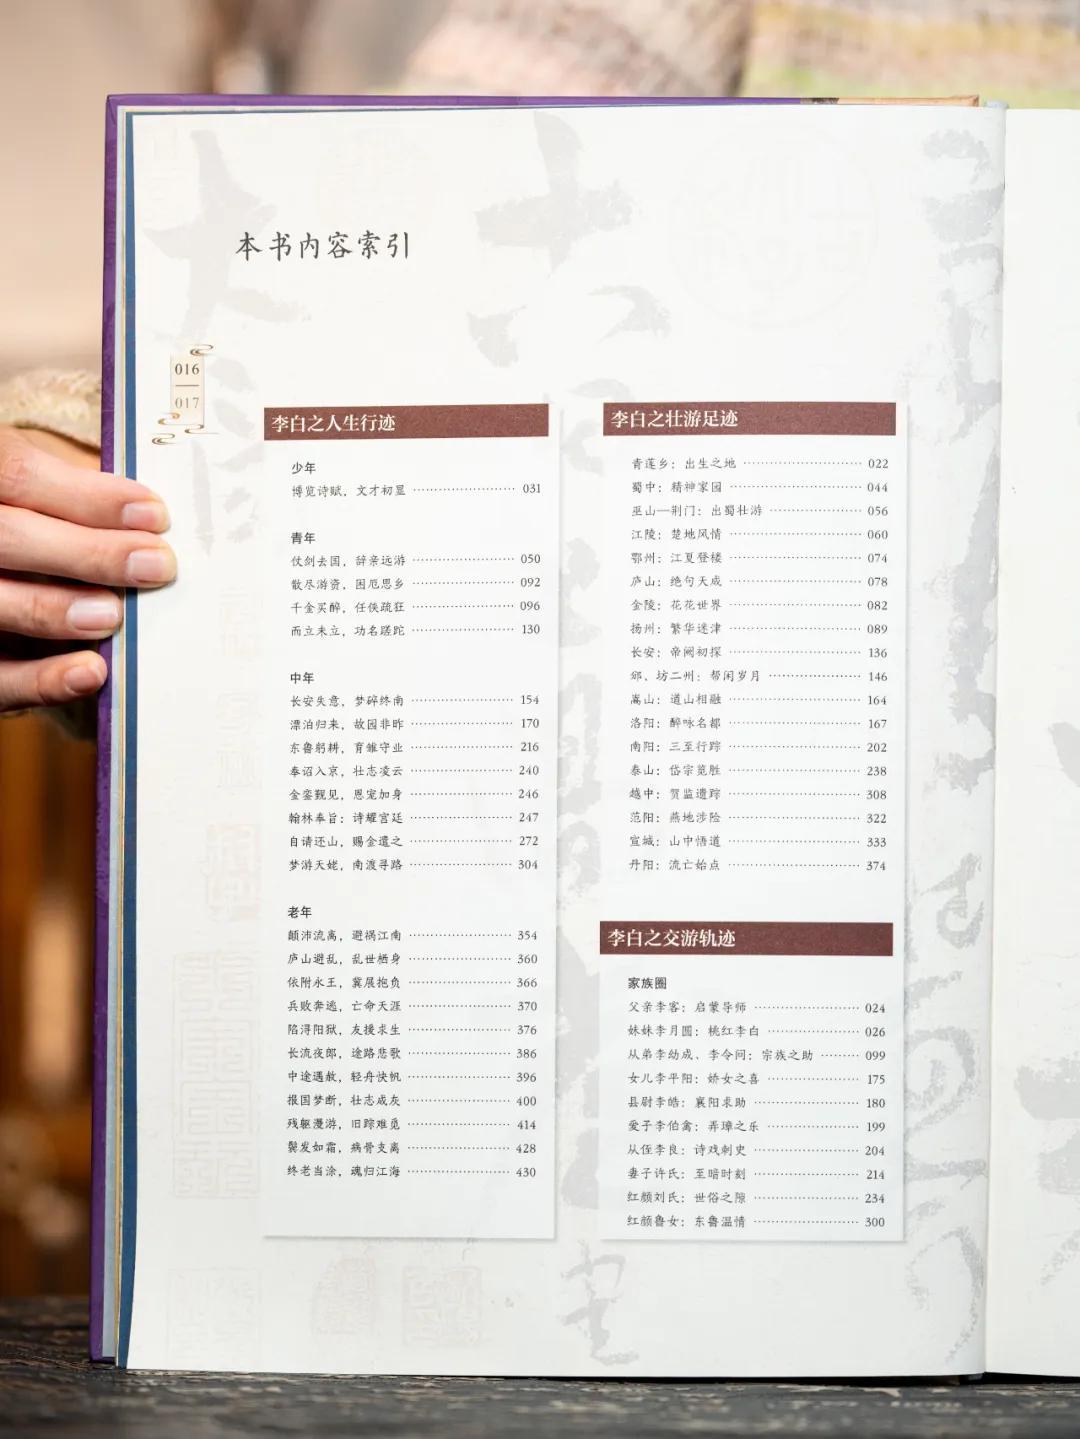 本书内容索引
016
017
李白之人生行迹
少年
博览诗赋，文才初显 031
青年
仗剑去国，辞亲远游 050
散尽游资，困厄思乡 092
千金买醉，任侠疏狂 096
而立未立，功名蹉跎 130
中年
长安失意，梦碎终南 154
漂泊归来，故园非昨 170
东鲁躬耕，育雏守业 216
奉诏入京，壮志凌云 240
金銮觐见，恩宠加身 246
翰林奉旨：诗耀宫廷 247
自请还山，赐金遣之 272
梦游天姥，南渡寻路 304
老年
颠沛流离，避祸江南 354
庐山避乱，乱世栖身 360
依附永王，冀展抱负 366
兵败奔逃，亡命天涯 370
陷浔阳狱，友援求生 376
长流夜郎，途路悲歌 386
中途遇赦，轻舟快帆 396
报国梦断，壮志成灰 400
残躯漫游，旧踪难觅 414
鬓发如霜，病骨支离 428
终老当涂，魂归江海 430
李白之壮游足迹
青莲乡：出生之地 022
蜀中：精神家园 044
巫山—荆门：出蜀壮游 056
江陵：楚地风情 060
鄂州：江夏登楼 074
庐山：绝句天成 078
金陵：花花世界 082
扬州：繁华迷津 089
长安：帝阙初探 136
邠、坊二州：帮闲岁月 146
嵩山：道山相融 164
洛阳：醉咏名都 167
南阳：三至行踪 202
泰山：岱宗览胜 238
越中：贺监遗踪 308
范阳：燕地涉险 322
宣城：山中悟道 333
丹阳：流亡始点 374
李白之交游轨迹
家族圈
父亲李客：启蒙导师 024
妹妹李月圆：桃红李白 026
从弟李幼成、李令问：宗族之助 099
女儿李平阳：娇女之喜 175
县尉李皓：襄阳求助 180
爱子李伯禽：弄璋之乐 199
从侄李良：诗戏刺史 204
妻子许氏：至暗时刻 214
红颜刘氏：世俗之隙 234
红颜鲁女：东鲁温情 300